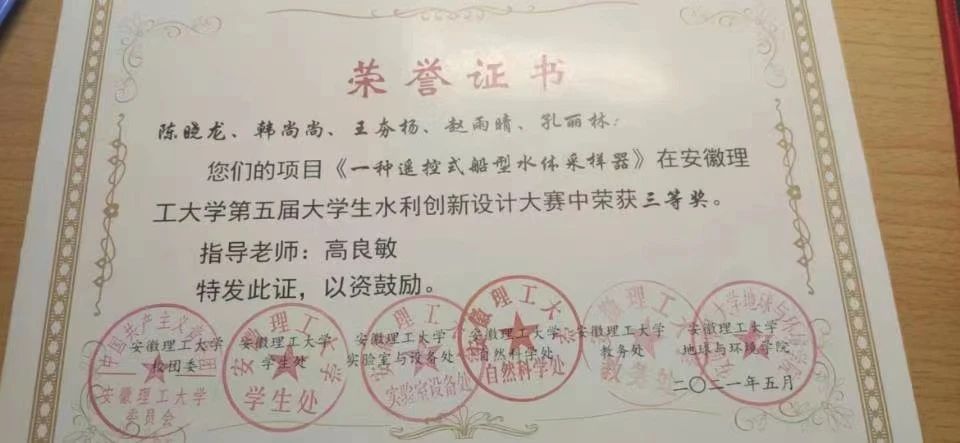 荣誉证书
陈晓龙、韩尚尚、王夯杨、赵雨晴、孔丽林:
您们的项目《一种遥控式船型水体采样器》在安徽理
工大学第五届大学生水利创新设计大赛中荣获三等奖。
指导老师:高良敏
特发此证,以资鼓励。
安徽理工大学 安徽理工大学 安徽理工大学 安徽理工大学 安徽理工大学 安徽理工大学
校团委 学生处 实验室与设备处 自然科学处 教务处 地球与环境学院
二〇二一年五月
中国共产主义青年团
安徽理工大学
委员会
安徽理工大学
学生处
安徽理工大学
实验室设备处
安徽理工大学
自然科学处
安徽理工大学
教务处